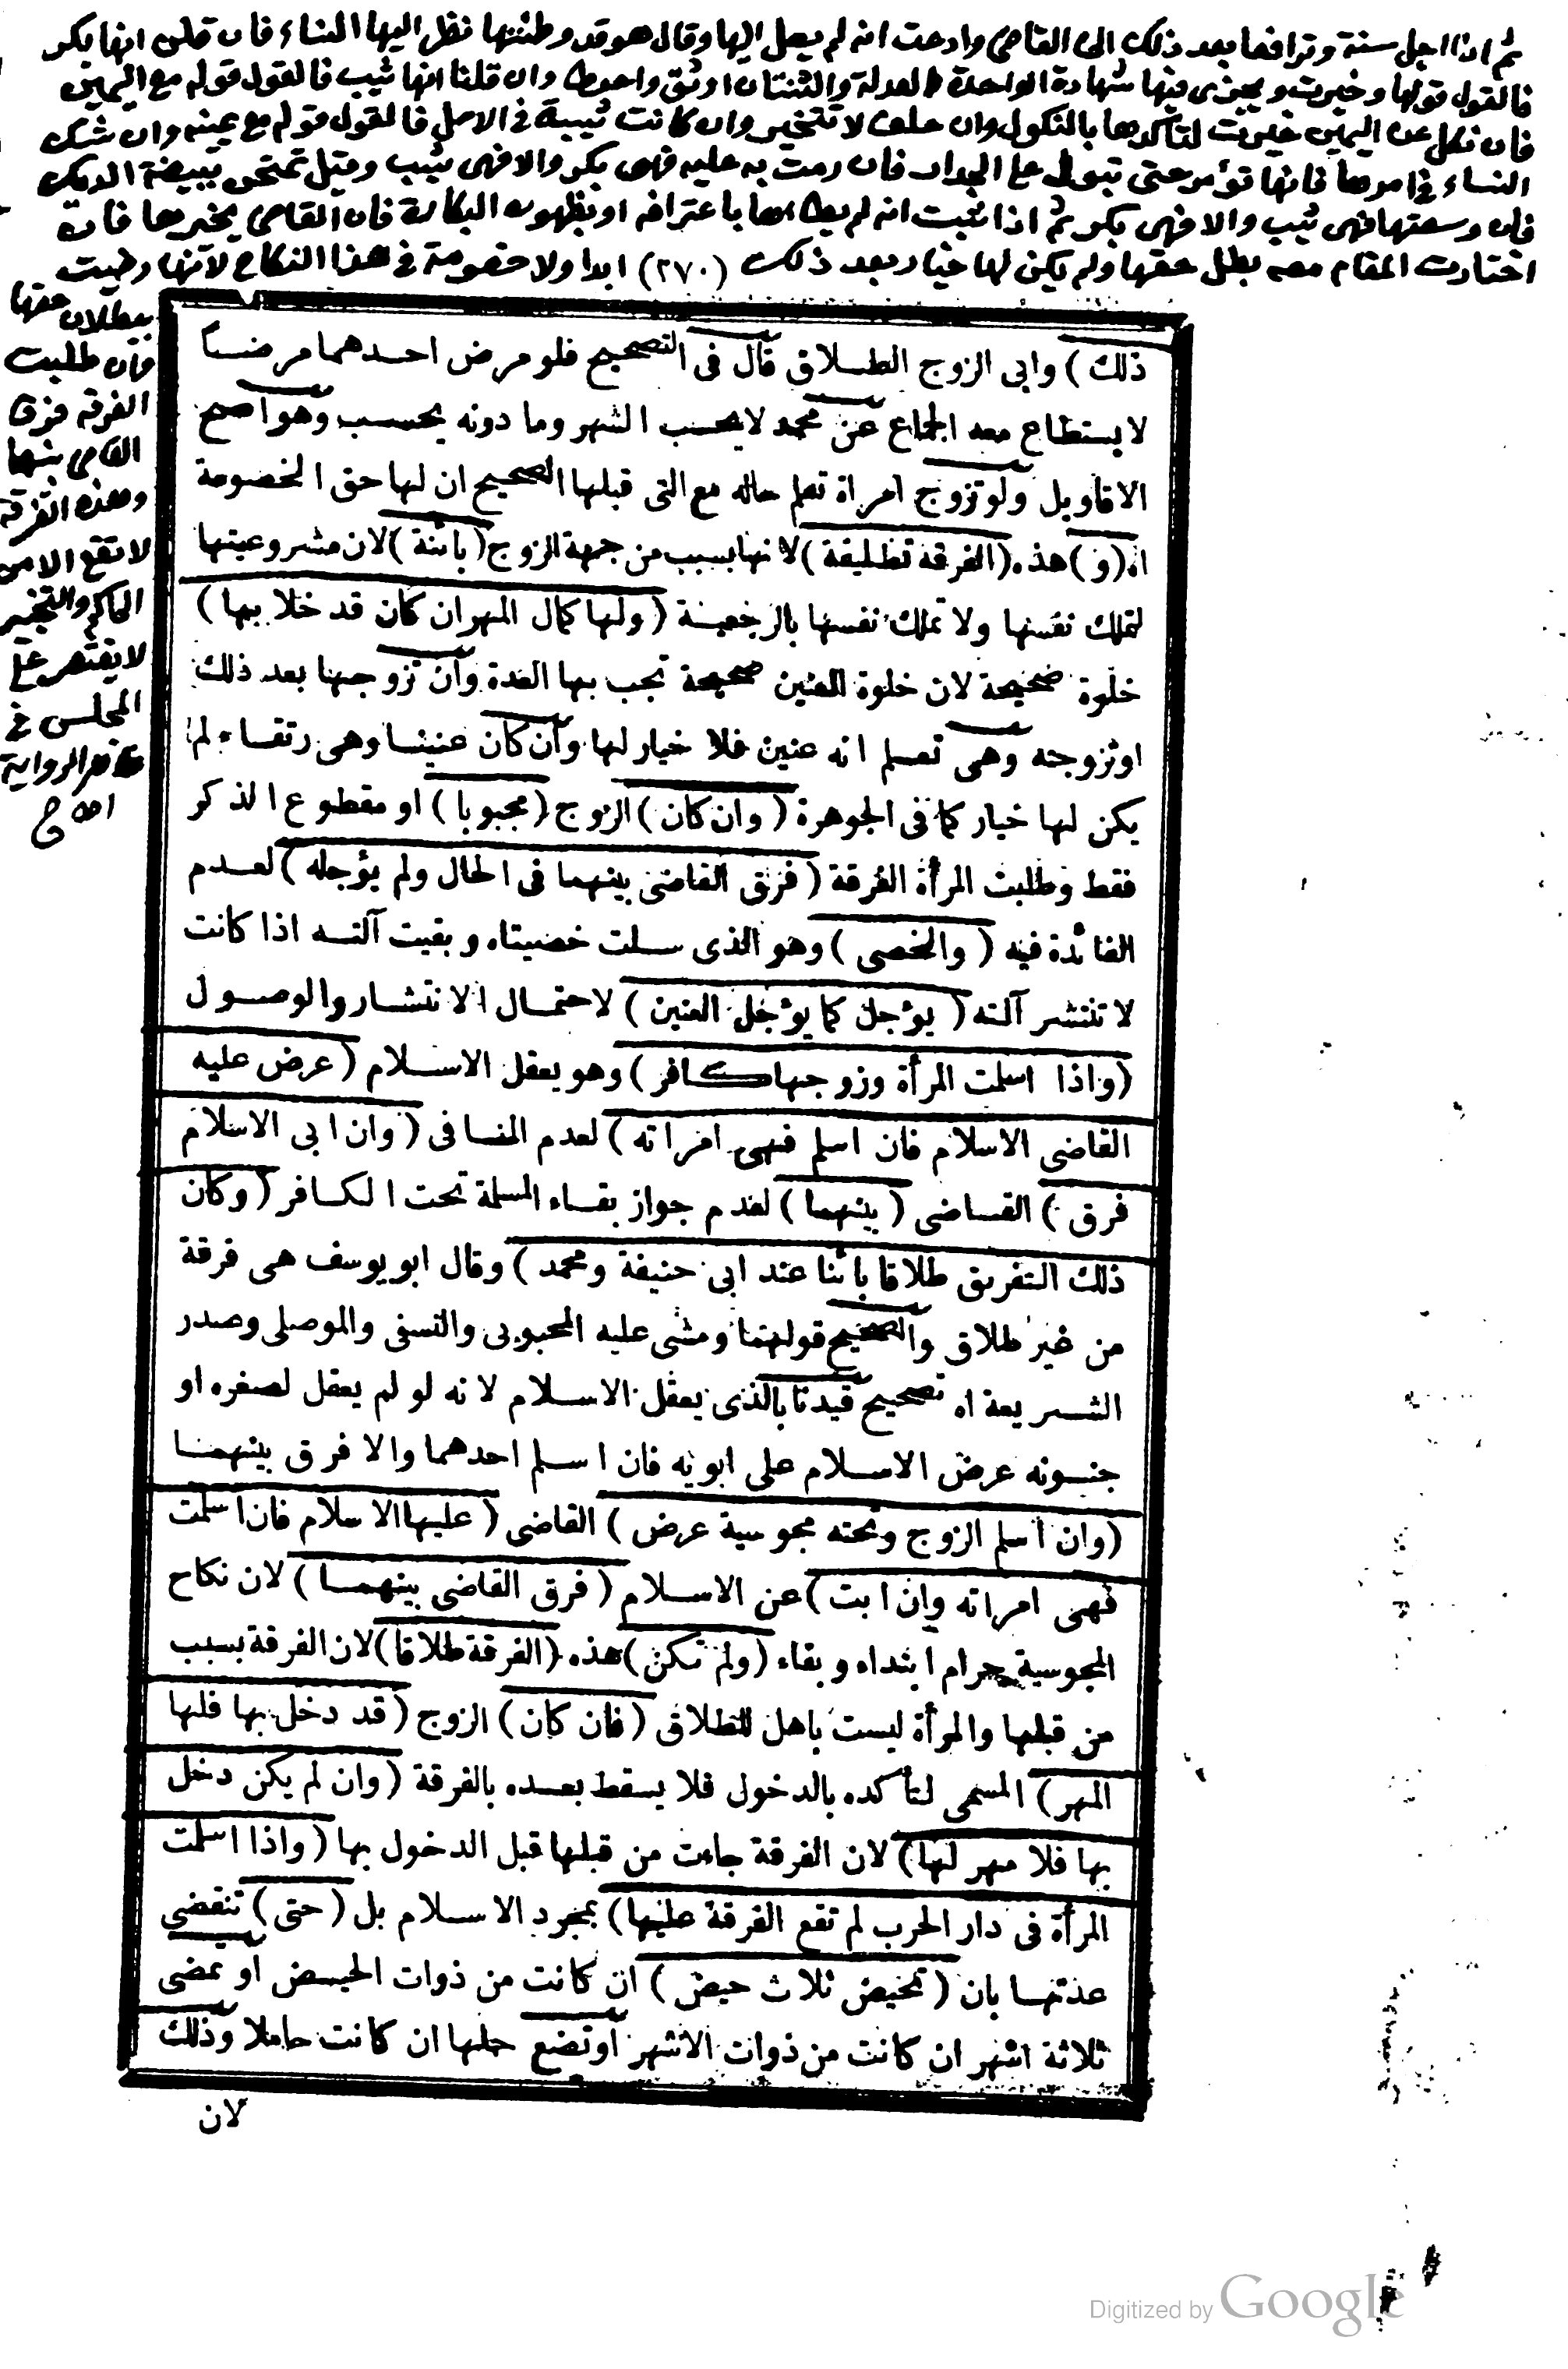 ثم اذا اجل سنة وترافعا بعد ذلك الى القاضى وادعت انه لم يصل اليها وقال هو قد وطئتها نظر اليها النساء فان قلن انها بكر
فالقول قولها وخيرت ويجزى فيها شهادة الواحدة العدلة والثنتان اوثق واحوط وان قلنا انها ثيب فالقول قوله مع اليمين
فان نكل عن اليمين خيرت لتأكدها بالنكول وان حلف لا تتخير وان كانت ثيبة فى الاصل فالقول قوله مع يمينه وان شك
النساء فى امرها فانها تؤمر حتى تبول على الجدار فان رمت به عليه فهى بكر والا فهى ثيب وقيل تمتحن ببيضة الديك
فان وسعتها فهى ثيب والا فهى بكر ثم اذا ثبت انه لم يطأها باعترافه او بظهور البكارة فان القاضى يخيرها فان
اختارت المقام معه بطل حقها ولم يكن لها خيار بعد ذلك (٢٧٠) ابدا ولا خصومة فى هذا النكاح لانها رضيت
ببطلان حقها
وان طلبت
الفرقة فرق
القاضى بينهما
وهذه الفرقة
لا تقع الا من
الحاكم والتخير
لا يقتصر على
المجلس فى
ظاهر الرواية
اه ج
ذلك) وابى الزوج الطلاق قال فى التصحيح فلو مرض احدهما مرضا
لا يستطاع معه الجماع عن محمد لا يحسب الشهر وما دونه يحسب وهو اصح
الاقاويل ولو تزوج امراة تعلم حاله مع التى قبلها الصحيح ان لها حق الخصومة
اه (و) هذه (الفرقة تطليقة) لانها بسبب من جهة الزوج (بائنة) لان مشروعيتها
لتملك نفسها ولا تملك نفسها بالرجعية (ولها كمال المهر ان كان قد خلا بها)
خلوة صحيحة لان خلوة العنين صحيحة تجب بها العدة وان تزوجها بعد ذلك
او تزوجته وهى تعلم انه عنين فلا خيار لها وان كان عنينا وهى رتقاء لم
يكن لها خيار كما فى الجوهرة (وان كان) الزوج (مجبوبا) او مقطوع الذكر
فقط وطلبت المرأة الفرقة (فرق القاضى بينهما فى الحال ولم يؤجله) لعدم
الفائدة فيه (والخصى) وهو الذى سلت خصيتاه وبقيت آلته اذا كانت
لا تنتشر آلته (يؤجل كما يؤجل العنين) لاحتمال الانتشار والوصول
(واذا اسلمت المرأة وزوجها كافر) وهو يعقل الاسلام (عرض عليه
القاضى الاسلام فان اسلم فهى امراته) لعدم المنافى (وان ابى الاسلام
فرق) القاضى (بينهما) لعدم جواز بقاء المسلمة تحت الكافر (وكان
ذلك التفريق طلاقا بائنا عند ابى حنيفة ومحمد) وقال ابو يوسف هى فرقة
من غير طلاق والصحيح قولهما ومشى عليه المحبوبى والنسفى والموصلى وصدر
الشريعة اه تصحيح قيدنا بالذى يعقل الاسلام لانه لو لم يعقل لصغره او
جنونه عرض الاسلام على ابويه فان اسلم احدهما والا فرق بينهما
(وان اسلم الزوج وتحته مجوسية عرض) القاضى (عليها الاسلام فان اسلمت
فهى امراته وان ابت) عن الاسلام (فرق القاضى بينهما) لان نكاح
المجوسية حرام ابتداء وبقاء (ولم تكن) هذه (الفرقة طلاقا) لان الفرقة بسبب
من قبلها والمرأة ليست باهل للطلاق (فان كان) الزوج (قد دخل بها فلها
المهر) المسمى لتأكده بالدخول فلا يسقط بعده بالفرقة (وان لم يكن دخل
بها فلا مهر لها) لان الفرقة جاءت من قبلها قبل الدخول بها (واذا اسلمت
المرأة فى دار الحرب لم تقع الفرقة عليها) بمجرد الاسلام بل (حتى) تنقضى
عدتها بان (تحيض ثلاث حيض) ان كانت من ذوات الحيض او تمضى
ثلاثة اشهر ان كانت من ذوات الاشهر او تضع حملها ان كانت حاملا وذلك
لان
Digitized by Google